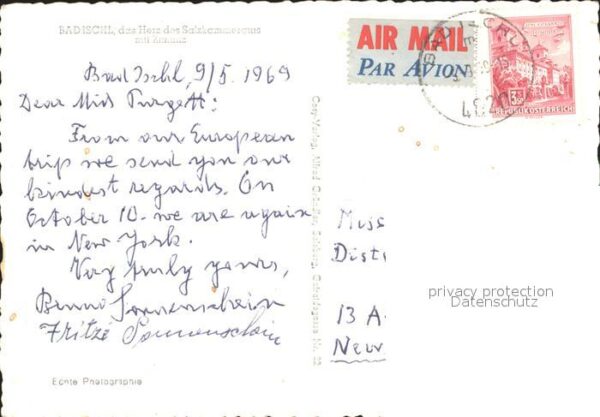 BAD ISCHL, das Herz des Salzkammergutes
mit Katrin
AIR MAIL
PAR AVION
BAD ISCHL
4820
3.50
REPUBLIK ÖSTERREICH
Bad Ischl, 9/5. 1969
Dear Miss Purgett:
From our European
trip we send you our
kindest regards. On
October 10. we are again
in New York.
Very truly yours,
Benno Sonnenschein
Fritzi Sonnenschein
Echte Photographie
Miss
Dist
13 A
New
privacy protection
Datenschutz